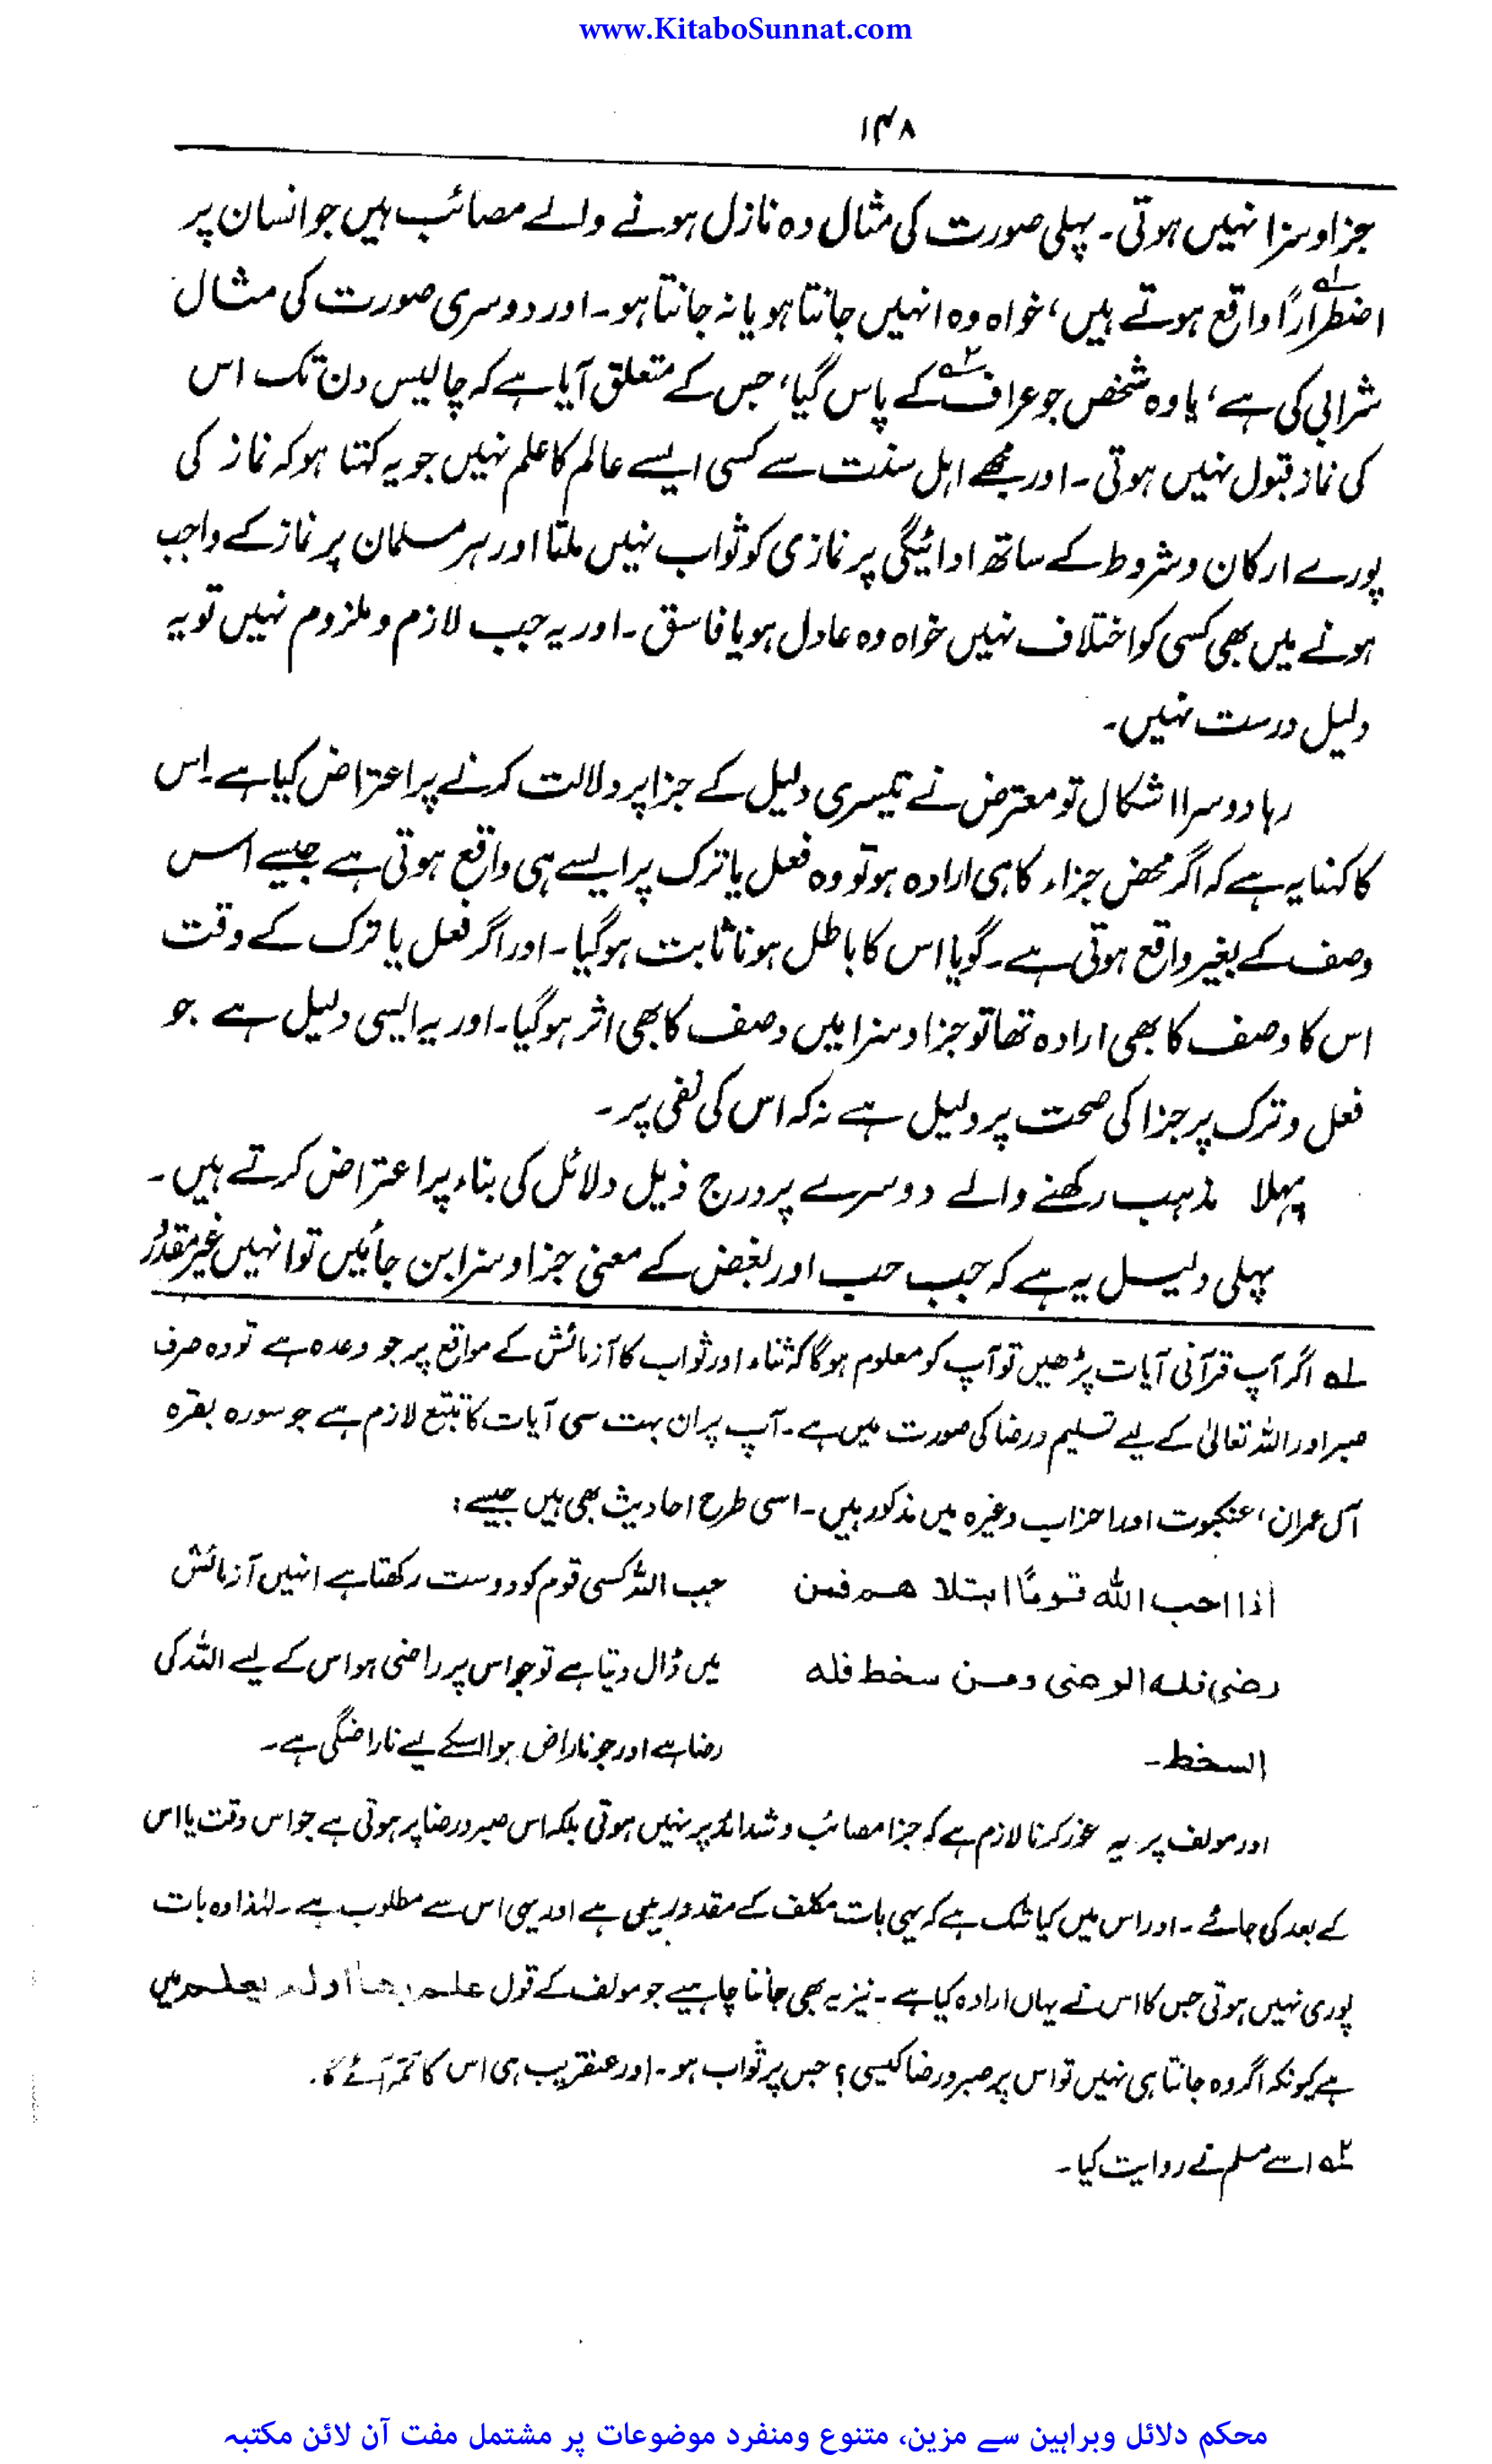 www.KitaboSunnat.com
۱۴۸
جزا و سزا نہیں ہوتی۔ پہلی صورت کی مثال وہ نازل ہونے والے مصائب ہیں جو انسان پر
اضطراراً لہ واقع ہوتے ہیں، خواہ وہ انہیں جانتا ہو یا نہ جانتا ہو۔ اور دوسری صورت کی مثال
شرابی کی ہے، یا وہ شخص جو عراف ۲ہ کے پاس گیا، جس کے متعلق آیا ہے کہ چالیس دن تک اس
کی نماز قبول نہیں ہوتی۔ اور مجھے اہل سنت سے کسی ایسے عالم کا علم نہیں جو یہ کہتا ہو کہ نماز کی
پورے ارکان و شروط کے ساتھ ادائیگی پر نمازی کو ثواب نہیں ملتا اور ہر مسلمان پر نماز کے واجب
ہونے میں بھی کسی کو اختلاف نہیں خواہ وہ عادل ہو یا فاسق۔ اور یہ جب لازم و ملزوم نہیں تو یہ
دلیل درست نہیں۔
رہا دوسرا اشکال تو معترض نے تیسری دلیل کے جزا پر دلالت کرنے پر اعتراض کیا ہے۔ اس
کا کہنا یہ ہے کہ اگر محض جزاء کا ہی ارادہ ہو تو وہ فعل یا ترک پر ایسے ہی واقع ہوتی ہے جیسے اس
وصف کے بغیر واقع ہوتی ہے۔ گویا اس کا باطل ہونا ثابت ہو گیا۔ اور اگر فعل یا ترک کے وقت
اس کا وصف کا بھی ارادہ تھا تو جزا و سزا میں وصف کا بھی اثر ہو گیا۔ اور یہ ایسی دلیل ہے جو
فعل و ترک پر جزا کی صحت پر دلیل ہے نہ کہ اس کی نفی پر۔
پہلا مذہب رکھنے والے دوسرے پر درج ذیل دلائل کی بناء پر اعتراض کرتے ہیں۔
پہلی دلیل یہ ہے کہ جب حب اور بغض کے معنی جزا و سزا بن جائیں تو انہیں غیر مقدُر
لہ اگر آپ قرآنی آیات پڑھیں تو آپ کو معلوم ہو گا کہ ثناء اور ثواب کا آزمائش کے مواقع پر جو وعدہ ہے تو وہ صرف
صبر اور اللہ تعالیٰ کے لیے تسلیم و رضا کی صورت میں ہے۔ آپ پر ان بہت سی آیات کا تتبع لازم ہے جو سورہ بقرہ
آل عمران، عنکبوت اور احزاب وغیرہ میں مذکور ہیں۔ اسی طرح احادیث بھی ہیں جیسے:
اذا احب الله قوماً ابتلا هم فمن جب اللہ کسی قوم کو دوست رکھتا ہے انہیں آزمائش
رضی فله الرضی ومن سخط فله میں ڈال دیتا ہے تو جو اس پر راضی ہو اس کے لیے اللہ کی
السخط۔ رضا ہے اور جو ناراض ہوا اسکے لیے ناراضگی ہے۔
اور مولف پر یہ غور کرنا لازم ہے کہ جزا مصائب و شدائد پر نہیں ہوتی بلکہ اس صبر و رضا پر ہوتی ہے جو اس وقت یا اس
کے بعد کی جائے۔ اور اس میں کیا شک ہے کہ یہی بات مکلف کے مقدور میں ہے اور یہی اس سے مطلوب ہے۔ لہٰذا وہ بات
پوری نہیں ہوتی جس کا اس نے یہاں ارادہ کیا ہے۔ نیز یہ بھی جاننا چاہیے جو مولف کے قول علم بها اولم یعلم میں
ہے کیونکہ اگر وہ جانتا ہی نہیں تو اس پر صبر و رضا کیسی؟ جس پر ثواب ہو۔ اور عنقریب ہی اس کا تتمہ آئے گا۔
۲ہ اسے مسلم نے روایت کیا۔
محکم دلائل وبراہین سے مزین، متنوع ومنفرد موضوعات پر مشتمل مفت آن لائن مکتبہ